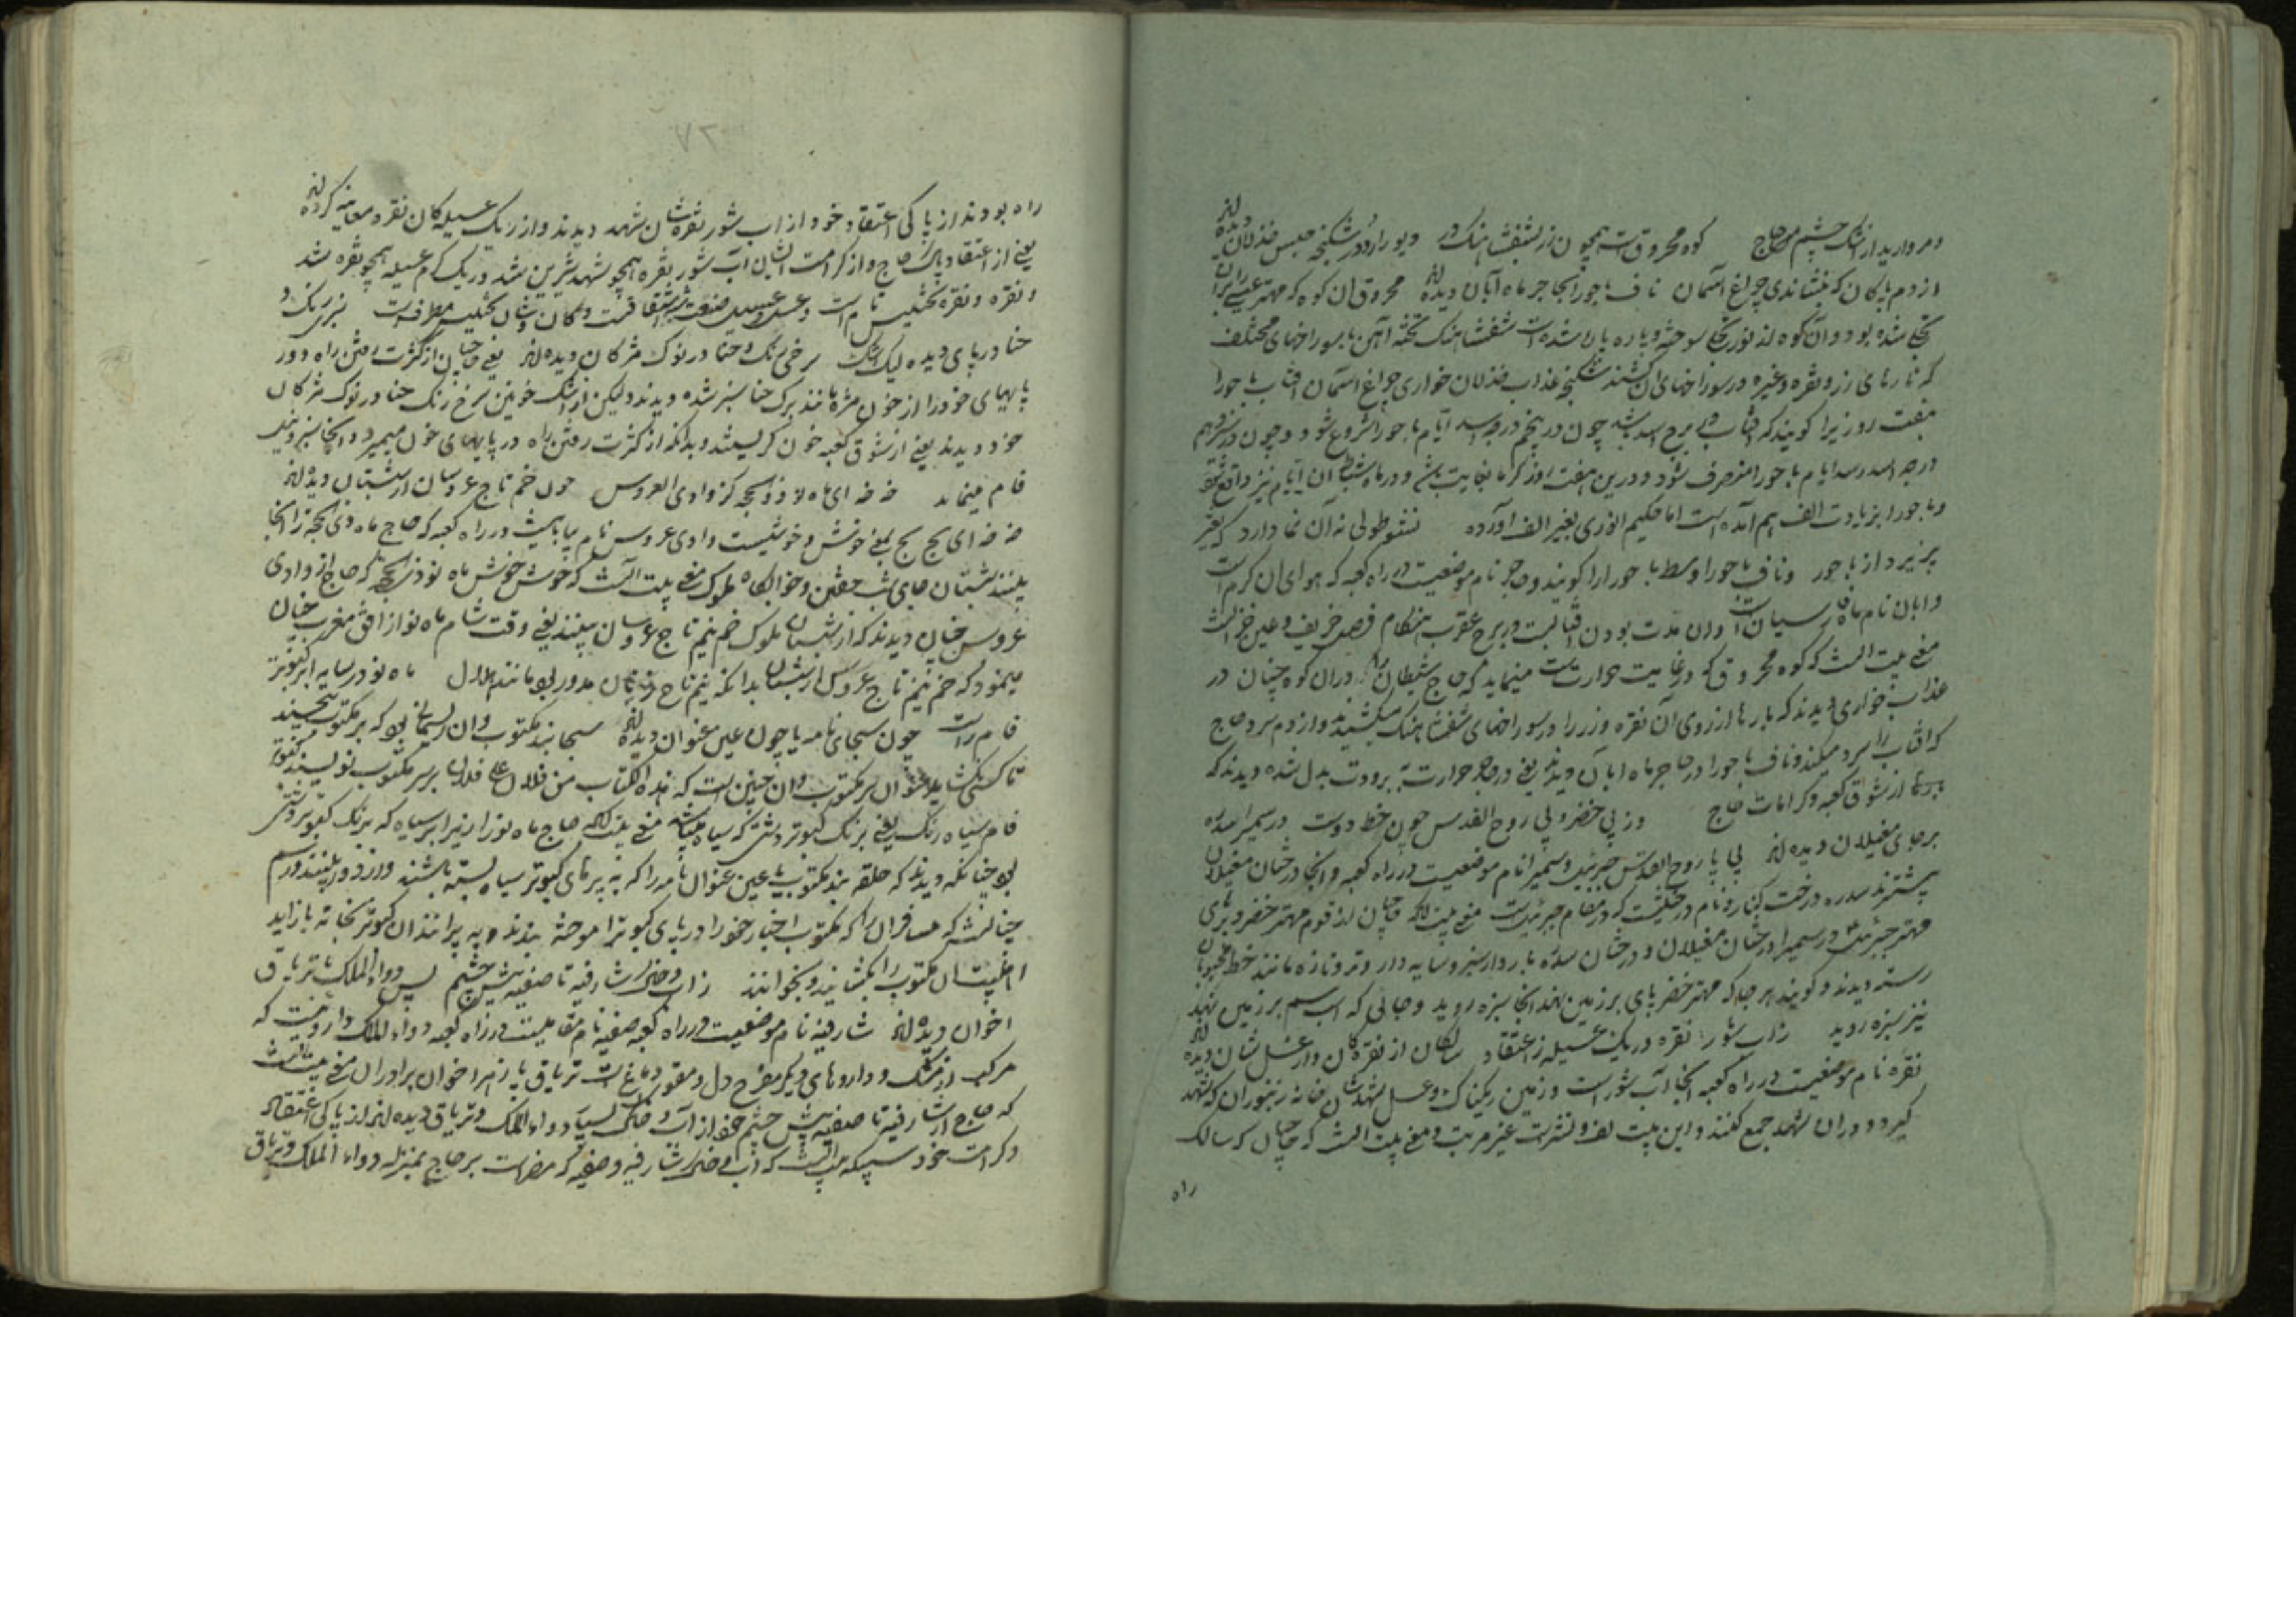 و مروارید از اشک چشم حاج کوه محروق است همچون زر بشفشاهنک در دیو را از و در شکنجه حبس خذلان دیده اند
از دم پاکان که بنشاندی چراغ آسمان ناف باحورا بحاجر ماه آبان دیده اند محروق ان کوه که مهتر
تجلی شده بود و آن کوه از نور تجلی سوخته و پاره پاره شده است شفشاهنک تخته آهن با سوراخهای مختلف
که تارهای زر و نقره و غیره در سوراخهای ان کشند شکنجه عذاب خذلان خواری چراغ آسمان افتاب باحورا
هفت روز زیرا کویند که افتاب در برج اسد باشد چون در پنجم درجه اسد ایام باحورا شروع شود و چون در
درجه اسد رسد ایام باحورا منصرف شود و درین هفت روز کرما بغایت باشد و در ماه شباط ان ایام نیز واقع
و باحورا بزیادت الف هم آمده است اما حکیم انوری بغیر الف آورده نشو طولی نه آن نما دارد که تغیر
پذیرد از باحور و ناف باحورا وسط باحورا را کویند و حاجر نام موضعیست در راه کعبه که هوای ان کرم است
و ابان نام ماه فارسیان است و ان مدت بودن افتابست در برج عقرب هنکام فصل خریف و عین خزانست
معنی بیت انست که کوه محروق که در غایت حرارت است مینماید که حاج شیطان را در ان کوه چنان در
عذاب خواری دیدند که بارها از روی آن نقره و زر را در سوراخهای شفشاهنک میکشیدند و از دم سرد حاج
که افتاب را سرد میکند و ناف باحورا در حاجر ماه ابان دیدند یعنی در حاجر حرارت به برودت بدل شده دیدند که
از شوق کعبه و کرامات حاج و ز پی خضر و پی روح القدس چون خط دوست در سمیرا سدره
بر جای مغیلان دیده اند پی پا روح القدس جبرئیل و سمیرا نام موضعیست در راه کعبه و انجا درختان مغیلان
بیشترند سدره درخت کنار و نام درختیست که در مقام جبرئیل است معنی بیت انکه حاجیان از قدوم مهتر خضر و پرهای
مهتر جبرئیل در سمیرا درختان مغیلان و درختان سدره باردار سبز و سایه دار و تر و تازه مانند خط محبوبان
رسته دیدند و کویند هر جا که مهتر خضر پای بر زمین نهد انجا سبزه روید و جائی که اسپ سم بر زمین نهد
نیز سبزه روید زاب شور نقره و ریک عسیله ز اعتقاد سالکان از نقره کان و از عسل شان دیده اند
نقره نام موضعیست در راه کعبه انجا آب شور است و زمین ریکناک و عسل شهد شان خانه زنبوران که شهد
کیرد و در ان شهد جمع کنند و این بیت لف و نشر است غیر مرتب و معنی بیت انست که حاجیان که سالک
راه
۷۲
راه بودند از پاکی اعتقاد خود از اب شور نقره شان شهد دیدند و از ریک عسیله کان نقره معاینه کرده اند
یعنی از اعتقاد پاک حاج و از کرامت ایشان آب شور نقره همچو شهد شیرین شد و ریک کرم عسیله همچو نقره شد
و نقره و نقره تجنیس تام است و عسل و عسیله صنعت اشتقاقست و کان و شان تجنیس مطرف است سبزی برک و
حنا در پای دیده لیک اشک سرخی رنک حنا در نوک مژکان دیده اند یعنی حاجیان از کثرت رفتن راه دور
پایهای خود را از خون مرده مانند برک حنا سبز شده دیدند ولیکن از اشک خونین سرخ رنک حنا در نوک مژکان
خود دیدند یعنی از شوق کعبه خون کریستند و بدانکه از کثرت رفتن راه در پایهای خون میمیرد و انجا سبز و نیلی
فام مینماید خه خه ای ماه نو ذو الحجه کز وادی العروس چون خم تاج عروسان از شبستان دیده اند
خه خه ای بخ بخ بمعنی خوش و خوشیست وادی عروس نام بیابانیست در راه کعبه که حاج ماه ذی الحجه را از انجا
بینند شبستان جای شب خفتن و خوابکاه ملوک معنی بیت انست که خوش خوش ماه نو ذی الحجه که حاج از وادی
عروس چنان دیدند که از شبستان ملوک خم نیم تاج عروسان بینند یعنی وقت شام ماه نو از افق مغرب چنان
مینمود که خم نیم تاج عروس از شبستان بدانکه نیم تاج زنان مدور بود مانند هلال ماه نو در سایه ابر کبوتر
فام راست چون سحای نامه یا چون عین عنوان دیده اند سحا بند مکتوب و ان ریسمانی بود که بر مکتوب پیچند
تا کسی نکشاید عنوان سر مکتوب و ان چنین است که هذه الکتاب من فلان الی فلان بر سر مکتوب نویسند کبوتر
فام سیاه رنک یعنی برنک کبوتر دشتی که سیاه میباشد معنی بیت آنکه حاج ماه نو را زیر ابر سیاه که برنک کبوتر دشتی
بود چنانکه دیدند که حلقه بند مکتوب یا عین عنوان نامه را که به پرهای کبوتر سیاه بسته باشند و از دور بینند و رسم
چنانست که مسافران را که مکتوب اخبار خود را در پای کبوتر اموخته بندند و به پرانند ان کبوتر بخانه باز اید
اهل بیت ان مکتوب را بکشایند و بخوانند زاب و خاک شارفیه تا صفیه پیش چشم پس دواء المسک یا تریاق
اخوان دیده اند شارفیه نام موضعیست در راه کعبه صفیه نام مقامیست در راه کعبه دواء المسک داروئیست که
مرکب از مشک و داروهای دیکر مفرح دل و مقوی دماغ است تریاق پازهر اخوان برادران معنی بیت انست
که حاج از شارفیه تا صفیه پیش چشم خود از آب و خاک بسیار دواء المسک و تریاق دیده اند از پاکی اعتقاد
و کرامت خود کسی که میدانست که آب و خاک شارفیه و صفیه که مضر است بر حاج بمنزله دواء المسک و تریاق